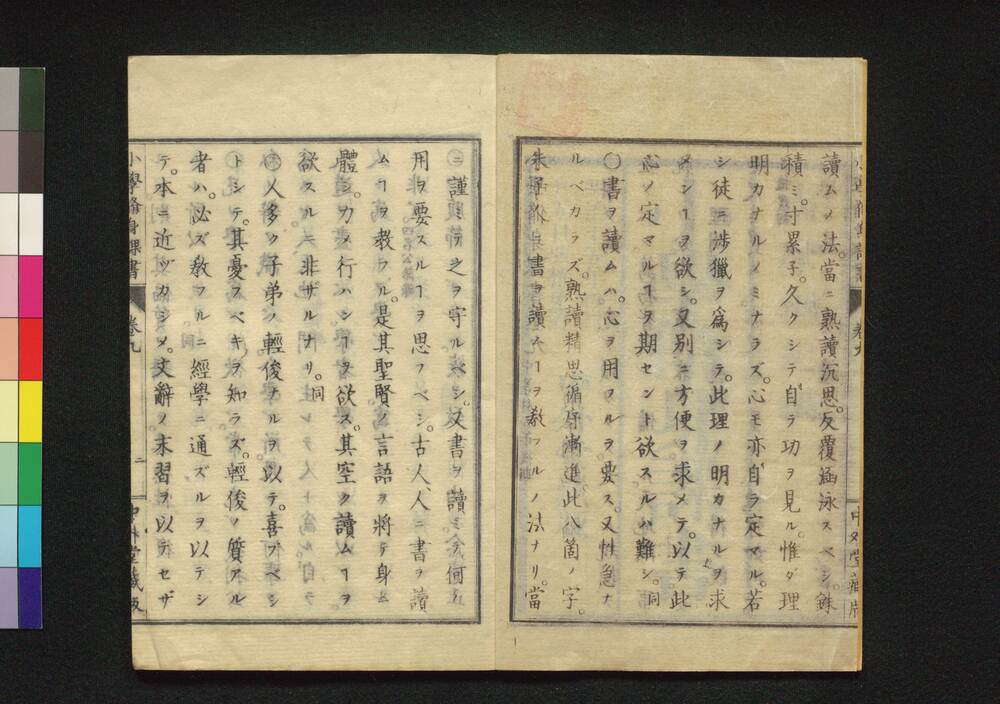 讀ムノ法。當ニ熟讀沉思。反覆涵泳スベシ。銖
積ミ。寸累子。久クシテ自ラ功ヲ見ル。惟ダ理
明カナルノミナラズ。心モ亦自ラ定マル。若
シ徒ニ涉獵ヲ爲シテ。此理ノ明カナルヲ求
メンヿヲ欲シ。又別ニ方便ヲ求メテ。以テ此
心ノ定マルヿヲ期セント欲スルハ難シ。同
〇書ヲ讀ムハ。心ヲ用フルヲ要ス。又性急ナ
ルベカラズ。熟讀精思循序漸進此八箇ノ字。
朱 書ヲ讀ムヿヲ敎フルノ法ナリ。當
ニ謹ミテ之ヲ守ルベシ。又書ヲ讀ミテ何ノ
用ヲ要スルヿヲ思フベシ。古人人ニ書ヲ讀
ムヿヲ敎フル。是其聖賢ノ言語ヲ將テ身ニ
體シ。力メ行ハンヿヲ欲ス。其空ク讀ムヿヲ
欲スルニ非サルナリ。同
〇人多ク子弟ノ輕俊ナルヲ以テ。喜ブベシ
トシテ。其憂フベキヲ知ラズ。輕俊ノ質アル
者ハ。必ズ敎フルニ經學ニ通ズルヲ以テシ
テ。本ニ近ヅカシメ。文辭ノ末習ヲ以テセザ
小學脩身課書 卷九 二 中外堂藏版